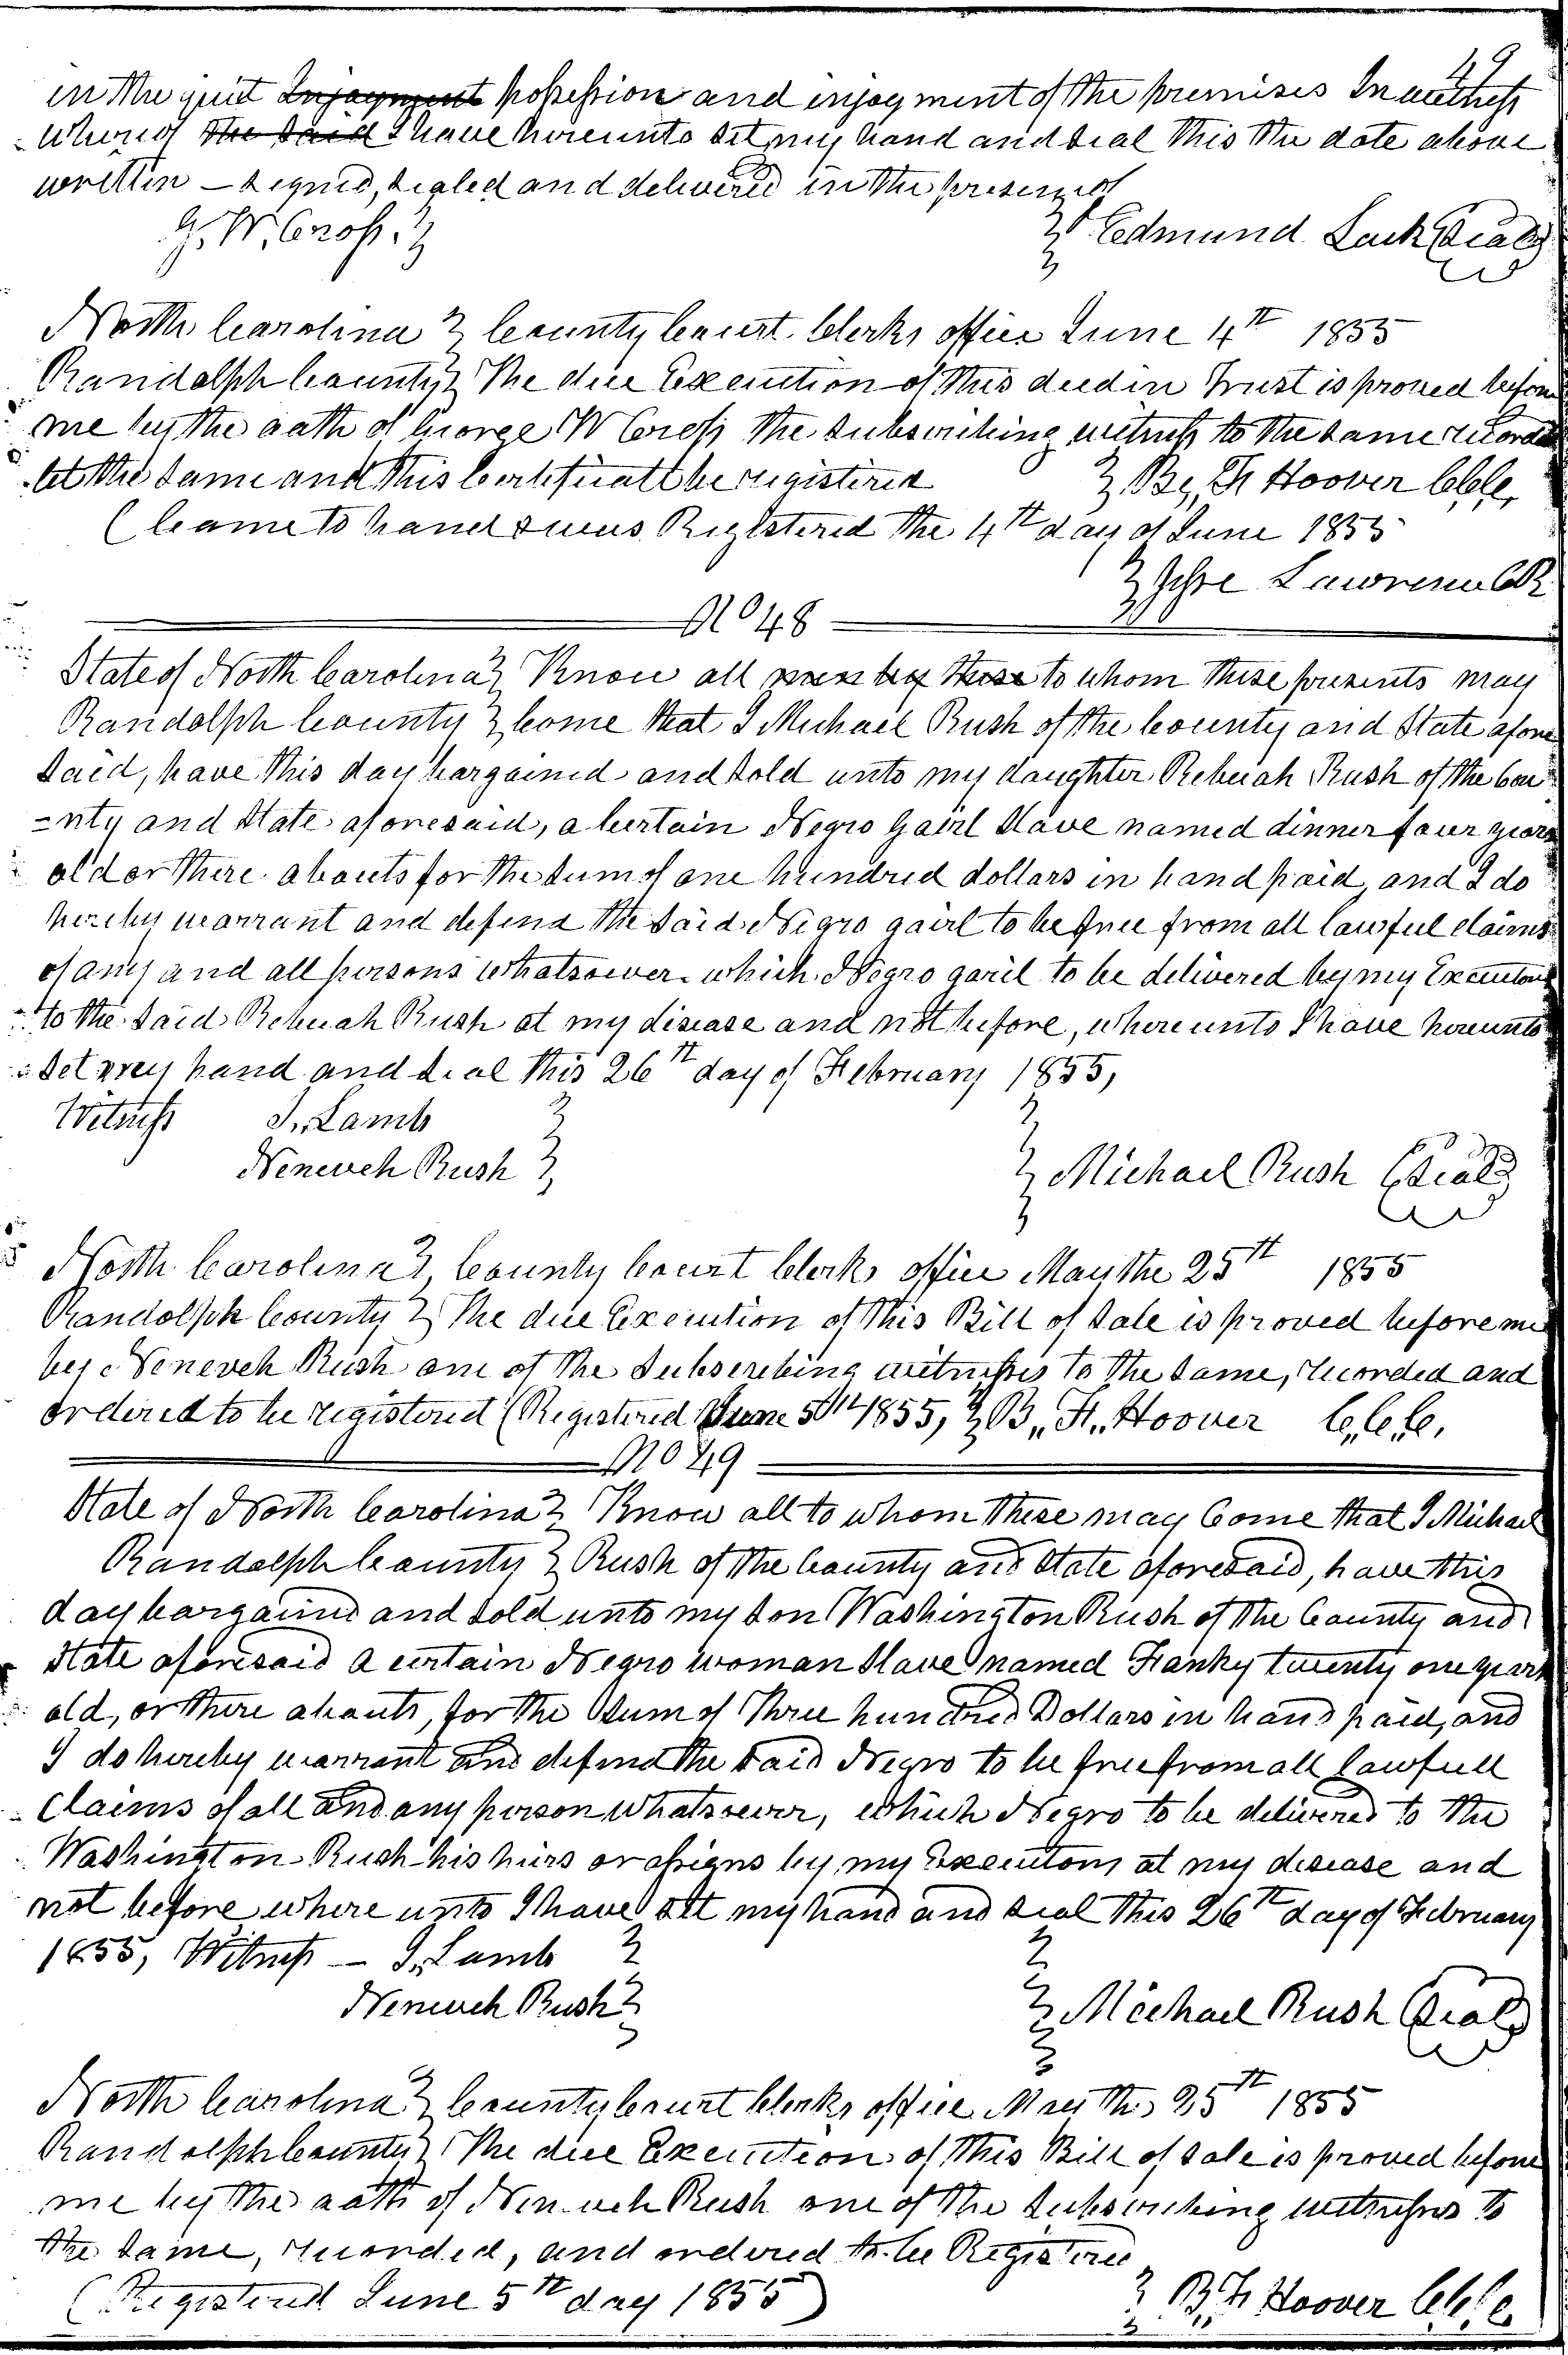 49
in the quiet Injoyment possession and injoyment of the premises In witness
whereof the said I have hereunto set my hand and seal this the date above
written – signed, sealed and delivered in the presence of
G. W. Cross. Edmund Lack (Seal)
North Carolina County Court Clerks office June 4th 1855
Randolph County The due Execution of this deed in Trust is proved before
me by the oath of George W Cross the subscribing witness to the same record
let the same and this certificate be registered By, F, Hoover C,C,C,
(Came to hand & was Registered the 4th day of June 1855
Lawrence PR
No 48
State of North Carolina Know all men by these to whom these presents may
Randolph County come that I Michael Rush of the County and State afore
said, have this day bargained and sold unto my daughter Rebecah Rush of the Cou
-nty and State aforesaid, a certain Negro Gairl Slave named dinner four years
old or there abouts for the sum of one hundred dollars in hand paid, and I do
hereby warrant and defend the said Negro gairl to be free from all lawful claims
of any and all persons whatsoever which Negro garil to be delivered by my Executors
to the said Rebecah Rush at my disease and not before, where unto I have hereunto
set my hand and seal this 26th day of February 1855,
Witness I,, Lamb
Neneveh Rush Michael Rush (Seal)
North Carolina County Court Clerks office May the 25th 1855
Randolph County The due Execution of this Bill of Sale is proved before me
by Neneveh Rush one of the Subscribing witnesses to the same, recorded and
ordered to be registered (Registered June 5th 1855, B,, F,, Hoover C,,C,,C,
No 49
State of North Carolina Know all to whom these may Come that I Michael
Randolph County Rush of the County and State aforesaid, have this
day bargained and sold unto my son Washington Rush of the County and
State aforesaid a certain Negro woman Slave named Franky twenty one years
old, or there abouts, for the Sum of Three hundred Dollars in hand paid, and
I do hereby warrant and defend the said Negro to be free from all lawfull
Claims of all and any person whatsoever, which Negro to be delivered to the
Washington Rush his heirs or assigns by my Executors at my disease and
not before where unto I have set my hand and seal this 26th day of February
1855, Witness – I,, Lamb
Neneveh Rush Michael Rush (Seal)
North Carolina County Court Clerks office May the 25th 1855
Randolph County The due Execution of this Bill of sale is proved before
me by the oath of Neneveh Rush one of the subscribing witnesses to
the same, recorded, and ordered to be Registered
(Registered June 5th day 1855) B,, F,, Hoover C,C,C,